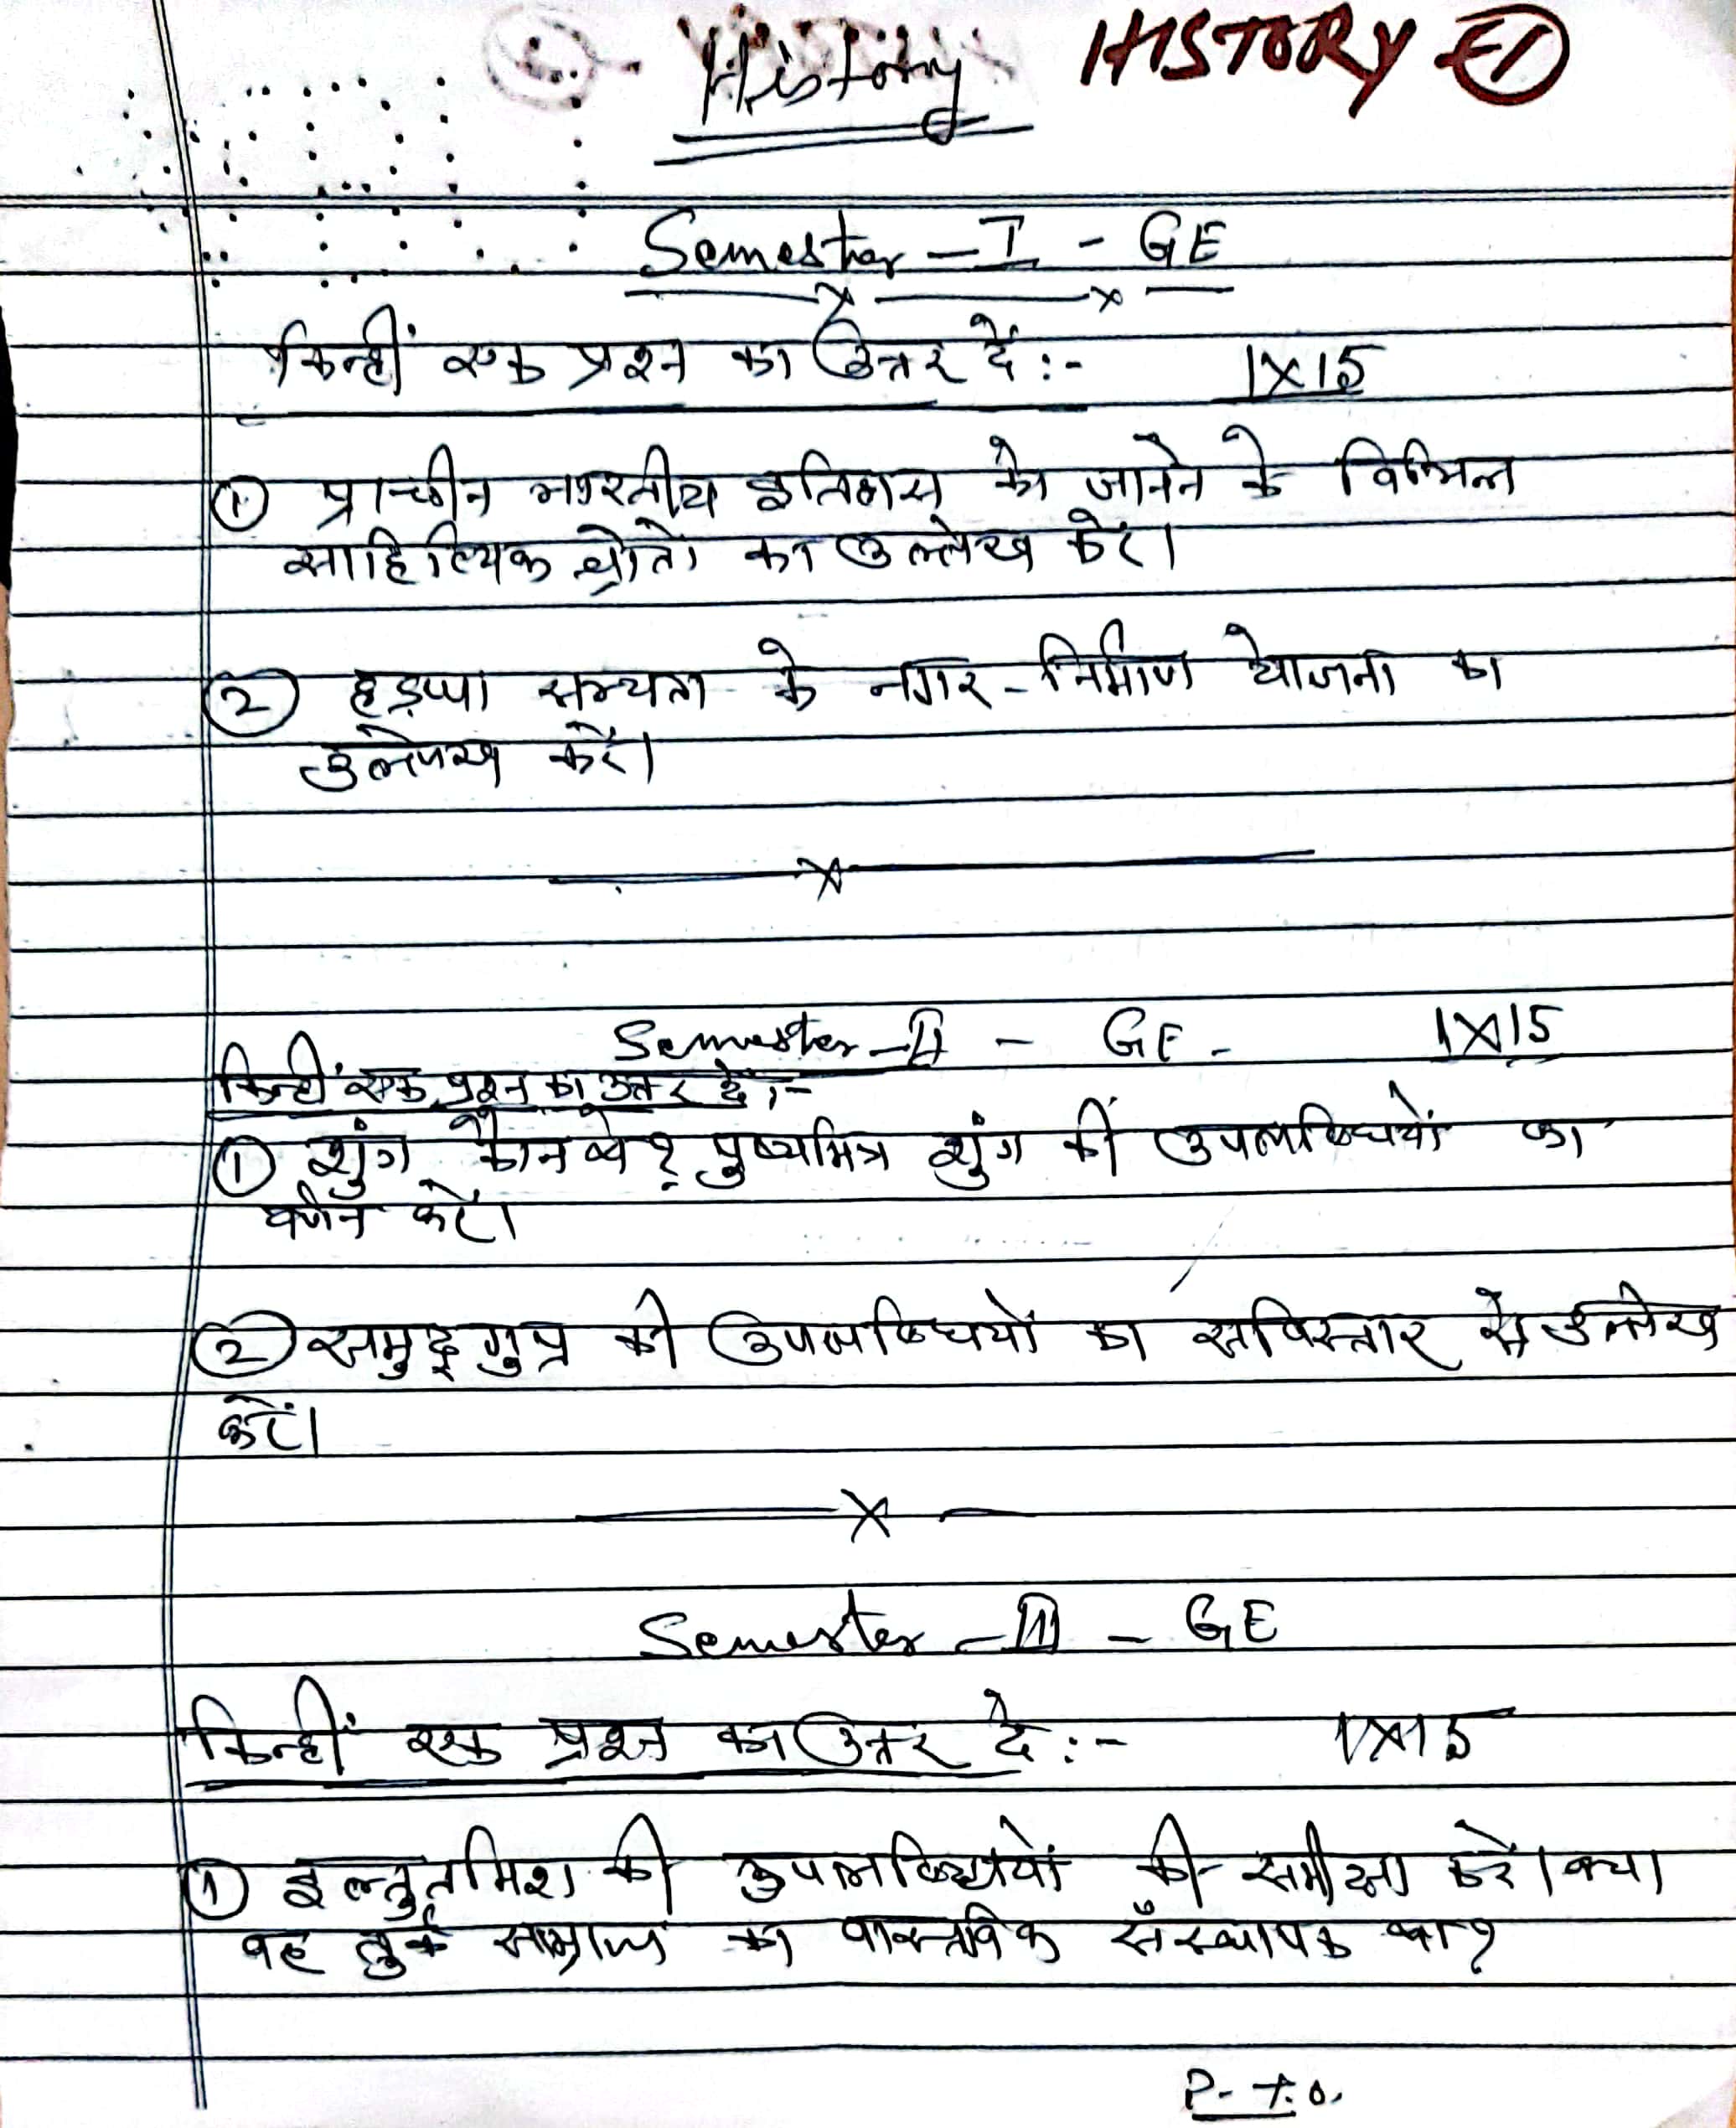 History HISTORY ①
Semester - I - GE
किन्हीं एक प्रश्न का उत्तर दें :- 1×15
① प्राचीन भारतीय इतिहास को जानने के विभिन्न
साहित्यिक श्रोतों का उल्लेख करें।
② हड़प्पा सभ्यता के नगर-निर्माण योजना का
उल्लेख करें।
Semester - II - GE - 1×15
किन्हीं एक प्रश्न का उत्तर दें :-
① शुंग कौन थे? पुष्यमित्र शुंग की उपलब्धियों का
वर्णन करें।
② समुद्रगुप्त की उपलब्धियों का सविस्तार से उल्लेख
करें।
Semester - III - GE
किन्हीं एक प्रश्न का उत्तर दें :- 1×15
① इल्तुतमिश की उपलब्धियों की समीक्षा करें। क्या
वह तुर्क साम्राज्य का वास्तविक संस्थापक था?
P.T.O.